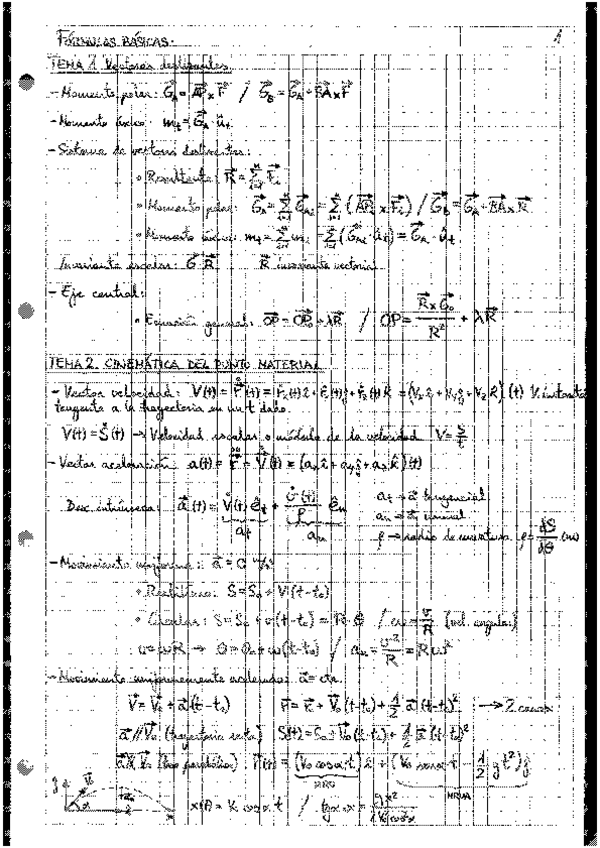 FÓRMULAS BÁSICAS. 1
TEMA 1. Vectores deslizantes
- Momento polar: G⃗_A = AP⃗ x F⃗ / G⃗_B = G⃗_A + BA⃗ x F⃗
- Momento áxico: m_t = G⃗_A · û_t
- Sistema de vectores deslizantes:
• Resultante: R⃗ = Σ F⃗_i
• Momento polar: G⃗_A = Σ G⃗_Ai = Σ (AP⃗_i x F⃗_i) / G⃗_B = G⃗_A + BA⃗ x R⃗
• Momento áxico: m_t = Σ m_i = Σ (G⃗_Ai · û_t) = G⃗_A · û_t
Invariante escalar: G⃗ · R⃗ R⃗ invariante vectorial
- Eje central:
• Ecuación general: OP⃗ = OP⃗_0 + λR⃗ / OP⃗ = (R⃗ x G⃗_0)/R² + λR⃗
TEMA 2. CINEMÁTICA DEL PUNTO MATERIAL
- Vector velocidad: V(t) = ṙ(t) = ṙ_x(t) î + ṙ_y(t) ĵ + ṙ_z(t) k̂ = (V_x î + V_y ĵ + V_z k̂)(t)
tangente a la trayectoria en un t dado.
V(t) = Ṡ(t) → Velocidad escalar o módulo de la velocidad V = S/t
- Vector aceleración: a(t) = r̈ = V̇(t) = (a_x î + a_y ĵ + a_z k̂)(t)
Desc. intrínseca: a⃗(t) = V̇(t) ê_t + v²(t)/ρ ê_n a_t → a⃗ tangencial
a_t a_n a_n → a⃗ normal
ρ → radio de curvatura ρ = dS/dθ (m)
- Movimiento uniforme: a⃗ = 0 m/s²
• Rectilíneo: S = S_0 + V(t-t_0)
• Circular: S = S_0 + v(t-t_0) = R · θ / ω = v/R (vel. angular)
v = ωR → θ = θ_0 + ω(t-t_0) / a_n = v²/R = Rω²
- Movimiento uniformemente acelerado: a⃗ = cte.
V⃗ = V⃗_0 + a⃗(t-t_0) r⃗ = r⃗_0 + V⃗_0(t-t_0) + 1/2 a⃗(t-t_0)² → 2 casos
a⃗ // V⃗_0 (trayectoria recta) S(t) = S_0 + V_0(t-t_0) + 1/2 a(t-t_0)²
a⃗ ∦ V⃗_0 (tiro parabólico): r⃗(t) = (V_0 cosα t) î + (V_0 senα t - 1/2 g t²) ĵ
MRU MRUA
x(t) = V_0 cosα t